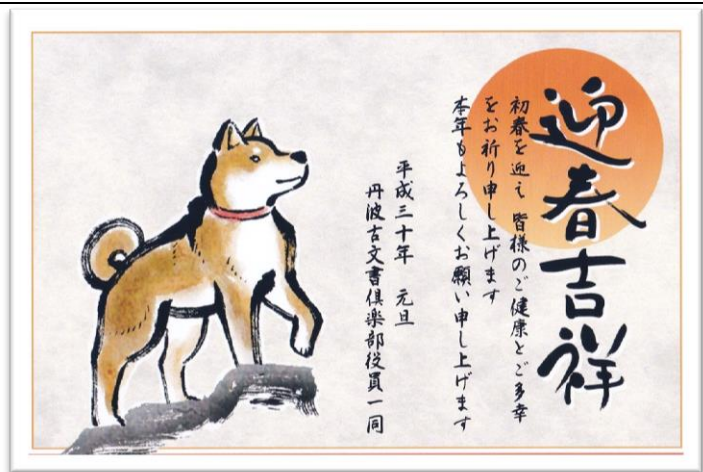 迎春吉祥
初春を迎え 皆様のご健康とご多幸
をお祈り申し上げます
本年もよろしくお願い申し上げます
平成三十年 元旦
丹波古文書倶楽部役員一同